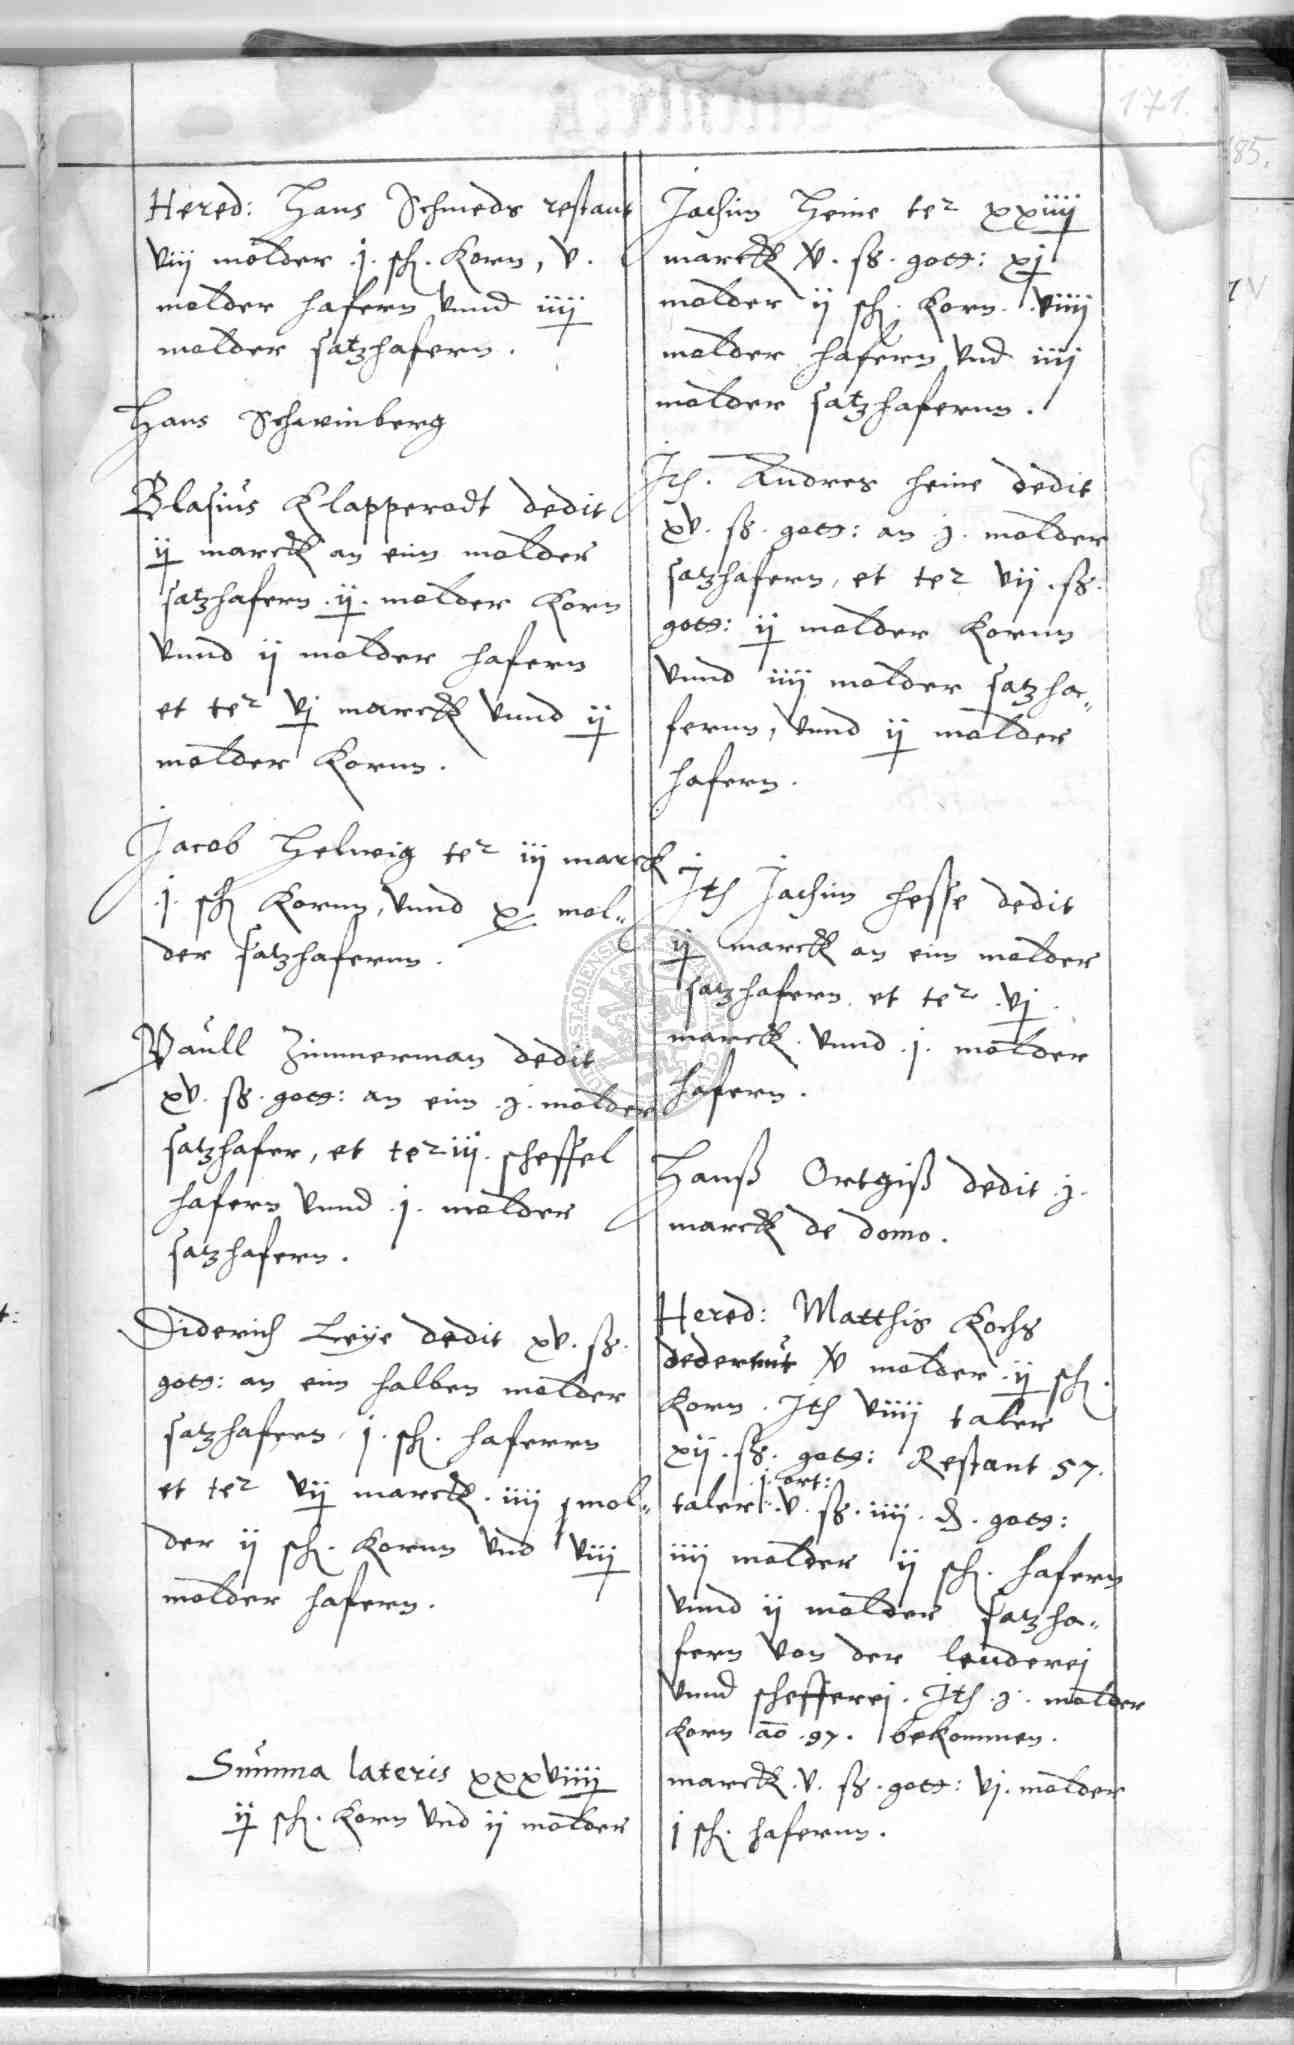 171.
Hered: Hans Schmeds restant
viij molder .j. sch. Korn, v.
molder hafern vnnd iiij
molder satzhafern.
Hans Schweinberg
Blasius Klapperodt dedit
ij marck an eim molder
satzhafern .ij. molder Korn
vnnd ij molder hafern
et ter vj marck vnnd ij
molder Kornn.
Jacob Helwig ter iij marck
.j. sch Kornn, vnnd x mol„
der satzhafernn.
Paull Zimmerman dedit
xv. ß. gots: an eim .j. molder
satzhafer, et ter iij. scheffel
hafern vnnd .j. molder
satzhafern.
Diderich Leye dedit xv. ß.
gots: an eim halben molder
satzhafern .j. sch. hafernn
et ter vij marck. iiij mol„
der ij sch. Kornn vnd viij
molder hafern.
Summa lateris xxxviiij
ij sch. Korn vnd ij molder
Jachim Heine ter xxiiij
marck v. ß. gots: xj
molder ij sch. Korn. viiij
molder hafern vnd iiij
molder satzhafernn.
Jth. Andres Heine dedit
xv. ß. gots: an j. molder
satzhafern, et ter vij. ß.
gots: ij molder Kornn
vnnd iiij molder satzha„
fernn, vnnd ij molder
hafern.
Jth Jachim Hesse dedit
ij marck an eim molder
satzhafern et ter .vj.
marck. vnnd .j. molder
hafern.
Hanß Ortgiß dedit .j.
marck de domo.
Hered: Matthis Kochs
dederunt v molder .ij sch.
Korn. Jth viiij taler
xij. ß. gots: Restant 57.
.j. ort:
taler .v. ß. iiij. d. gots:
iiij molder ij sch. hafern
vnnd ij molder satzha„
fern von der lenderej
vnnd schefferej. Jth .j. molder
Korn ao .97. bekommen.
marck. v. ß. gots: vj. molder
j sch. hafernn.